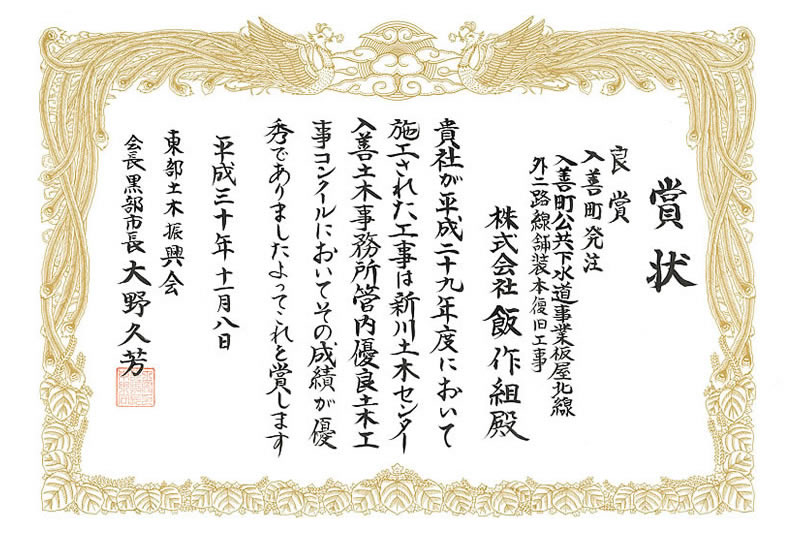 賞状
良賞
入善町発注
入善町公共下水道事業板屋北線
外二路線舗装本復旧工事
株式会社 飯作組殿
貴社が平成二十九年度において
施工された工事は新川土木センター
入善土木事務所管内優良土木工
事コンクールにおいてその成績が優
秀でありましたよってこれを賞します
平成三十年十一月八日
東部土木振興会
会長黒部市長 大野久芳